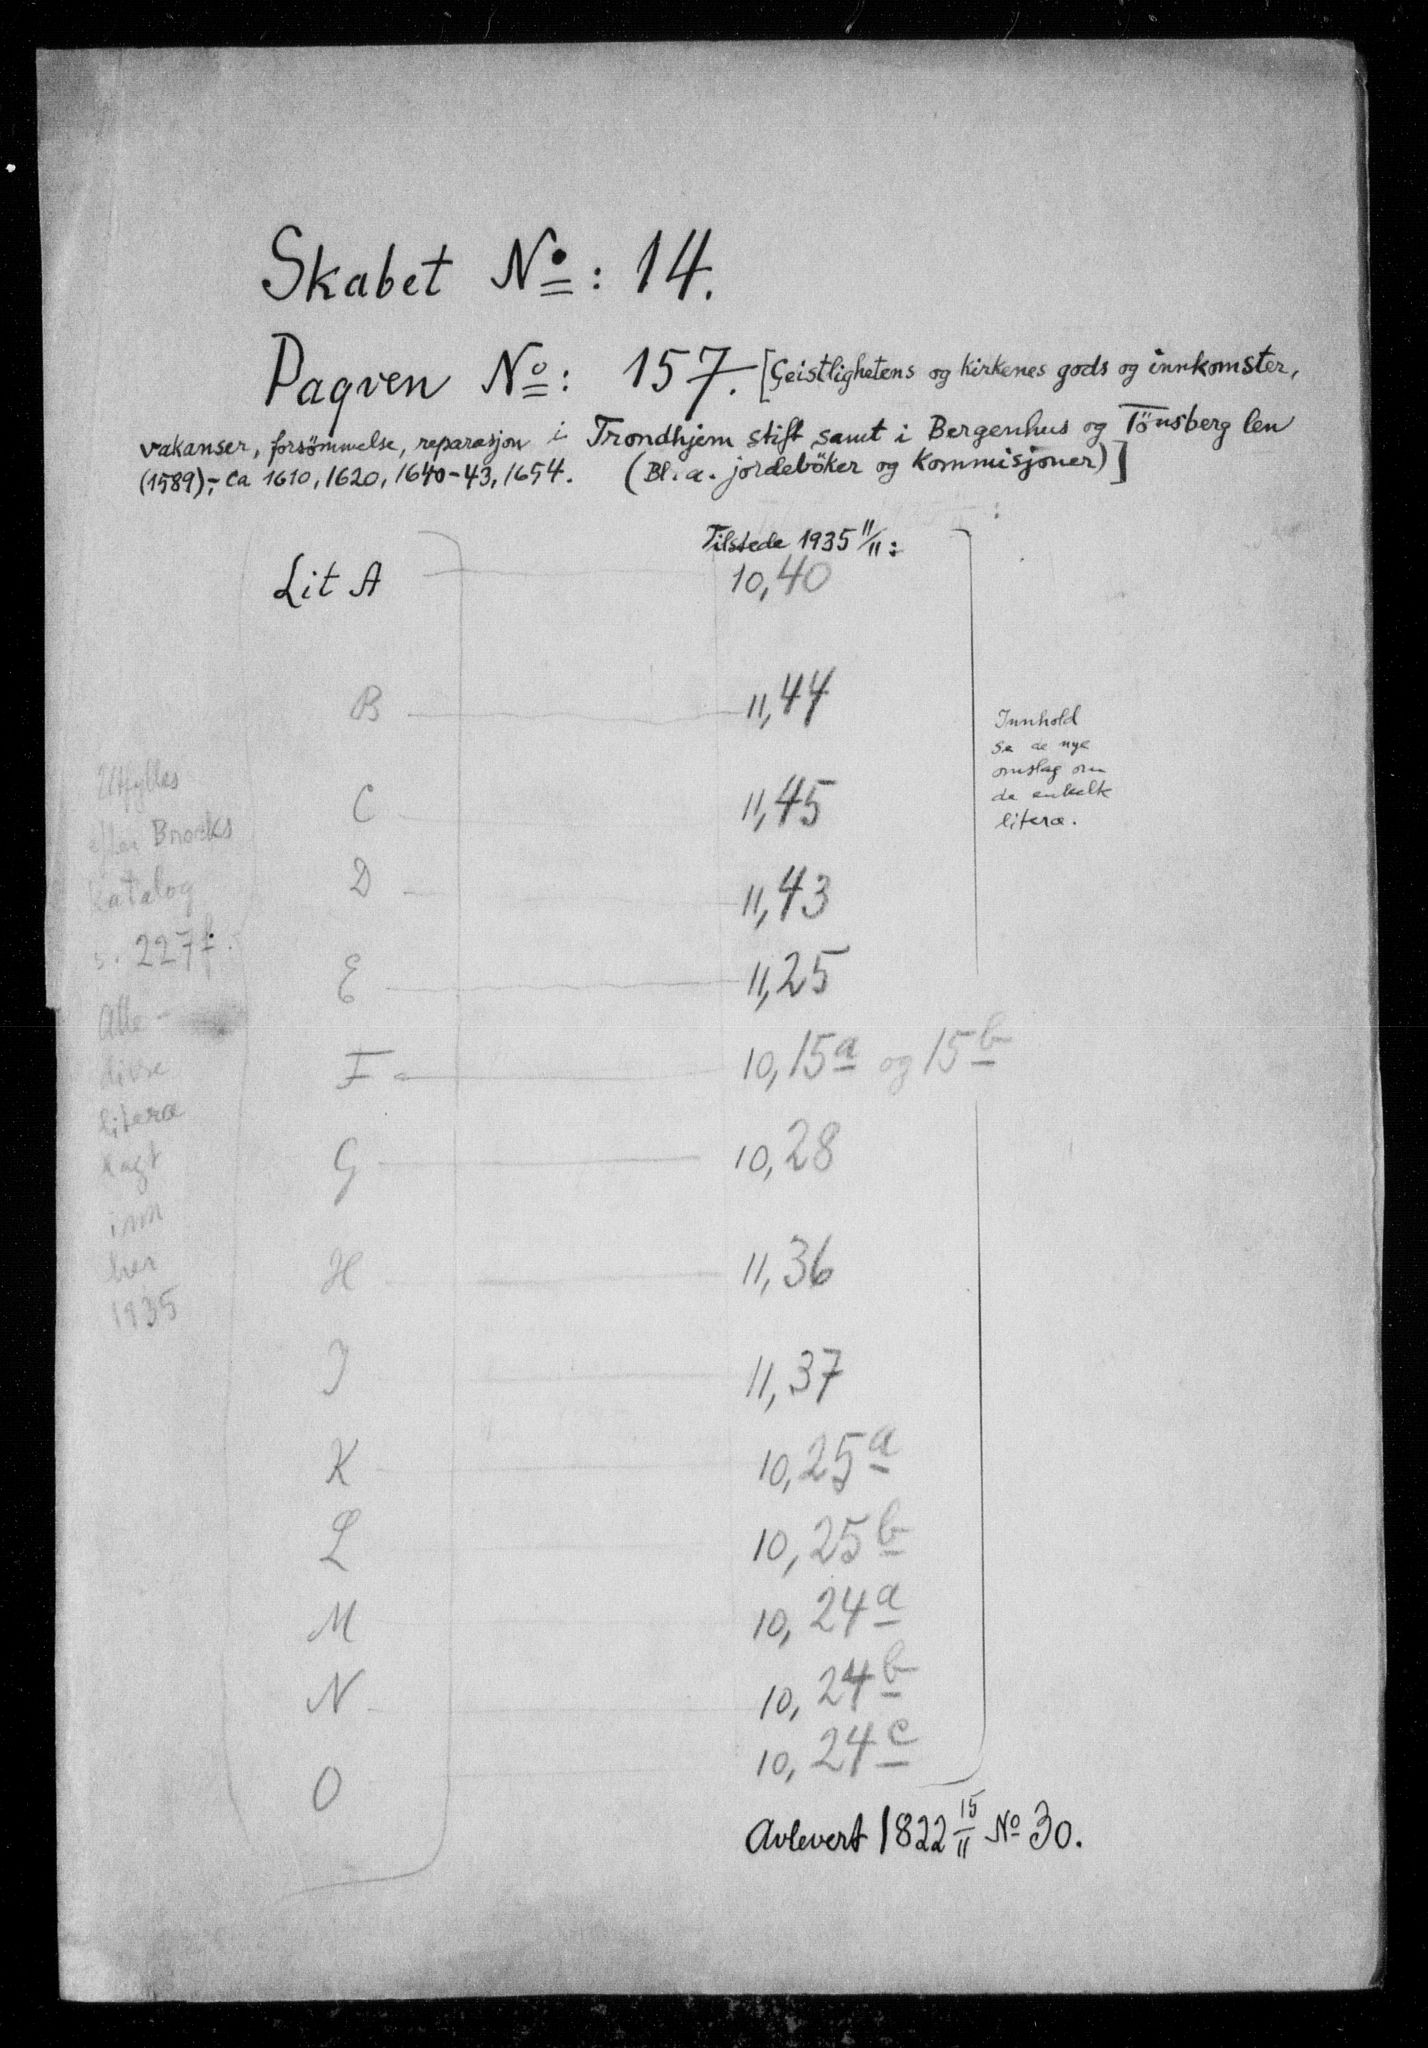 Skabet No: 14.
Paqven No: 157. [Geistlighetens og kirkenes gods og innkomster,
vakanser, forsömmelse, reparasjon i Trondhjem stift samt i Bergenhus og Tönsberg len
(1589)-, ca 1610, 1620, 1640-43, 1654. (Bl. a. jordebøker og kommisjoner)]
Tilstede 1935 11/11:
Lit A 10,40
B 11,44
C 11,45
D 11,43
E 11,25
F 10,15a og 15b
G 10,28
H 11,36
I 11,37
K 10,25a
L 10,25b
M 10,24a
N 10,24b
O 10,24c
Innhold
se de nye
omslag om
de enkelte
litera.
Utfylles
efter Brocks
Katalog
s. 227f.
Alle
disse
litera
lagt
inn
her
1935
Avlevert 1822 15/11 No 30.